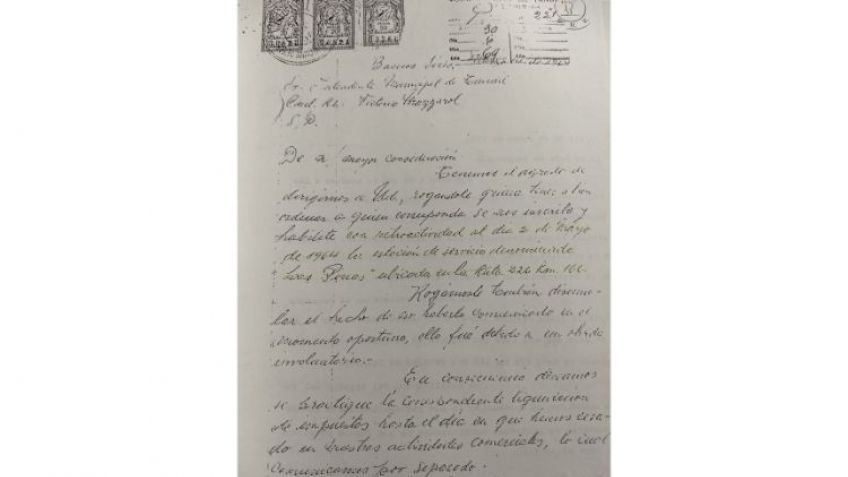 22
30
69
Buenos Aires,
Sr. Intendente Municipal de
Cnel. Re.
S/D.
De n/ mayor consideración
Tenemos el agrado de
dirigirnos a Ud., rogándole quiera tener a bien
ordenar a quien corresponda se nos inscriba y
habilite con retroactividad al día 2 de Mayo
de 1964 la estación de servicio denominada
"Las" ubicada en la Ruta 226 Km.
Rogámosle también disimu-
lar el hecho de no haberlo comunicado en el
momento oportuno, ello fué debido a un olvido
involuntario.-
En consecuencia deseamos
se practique la correspondiente liquidación
de impuestos hasta el día en que hemos cesa-
do en nuestras actividades comerciales, lo cual
comunicamos por separado.